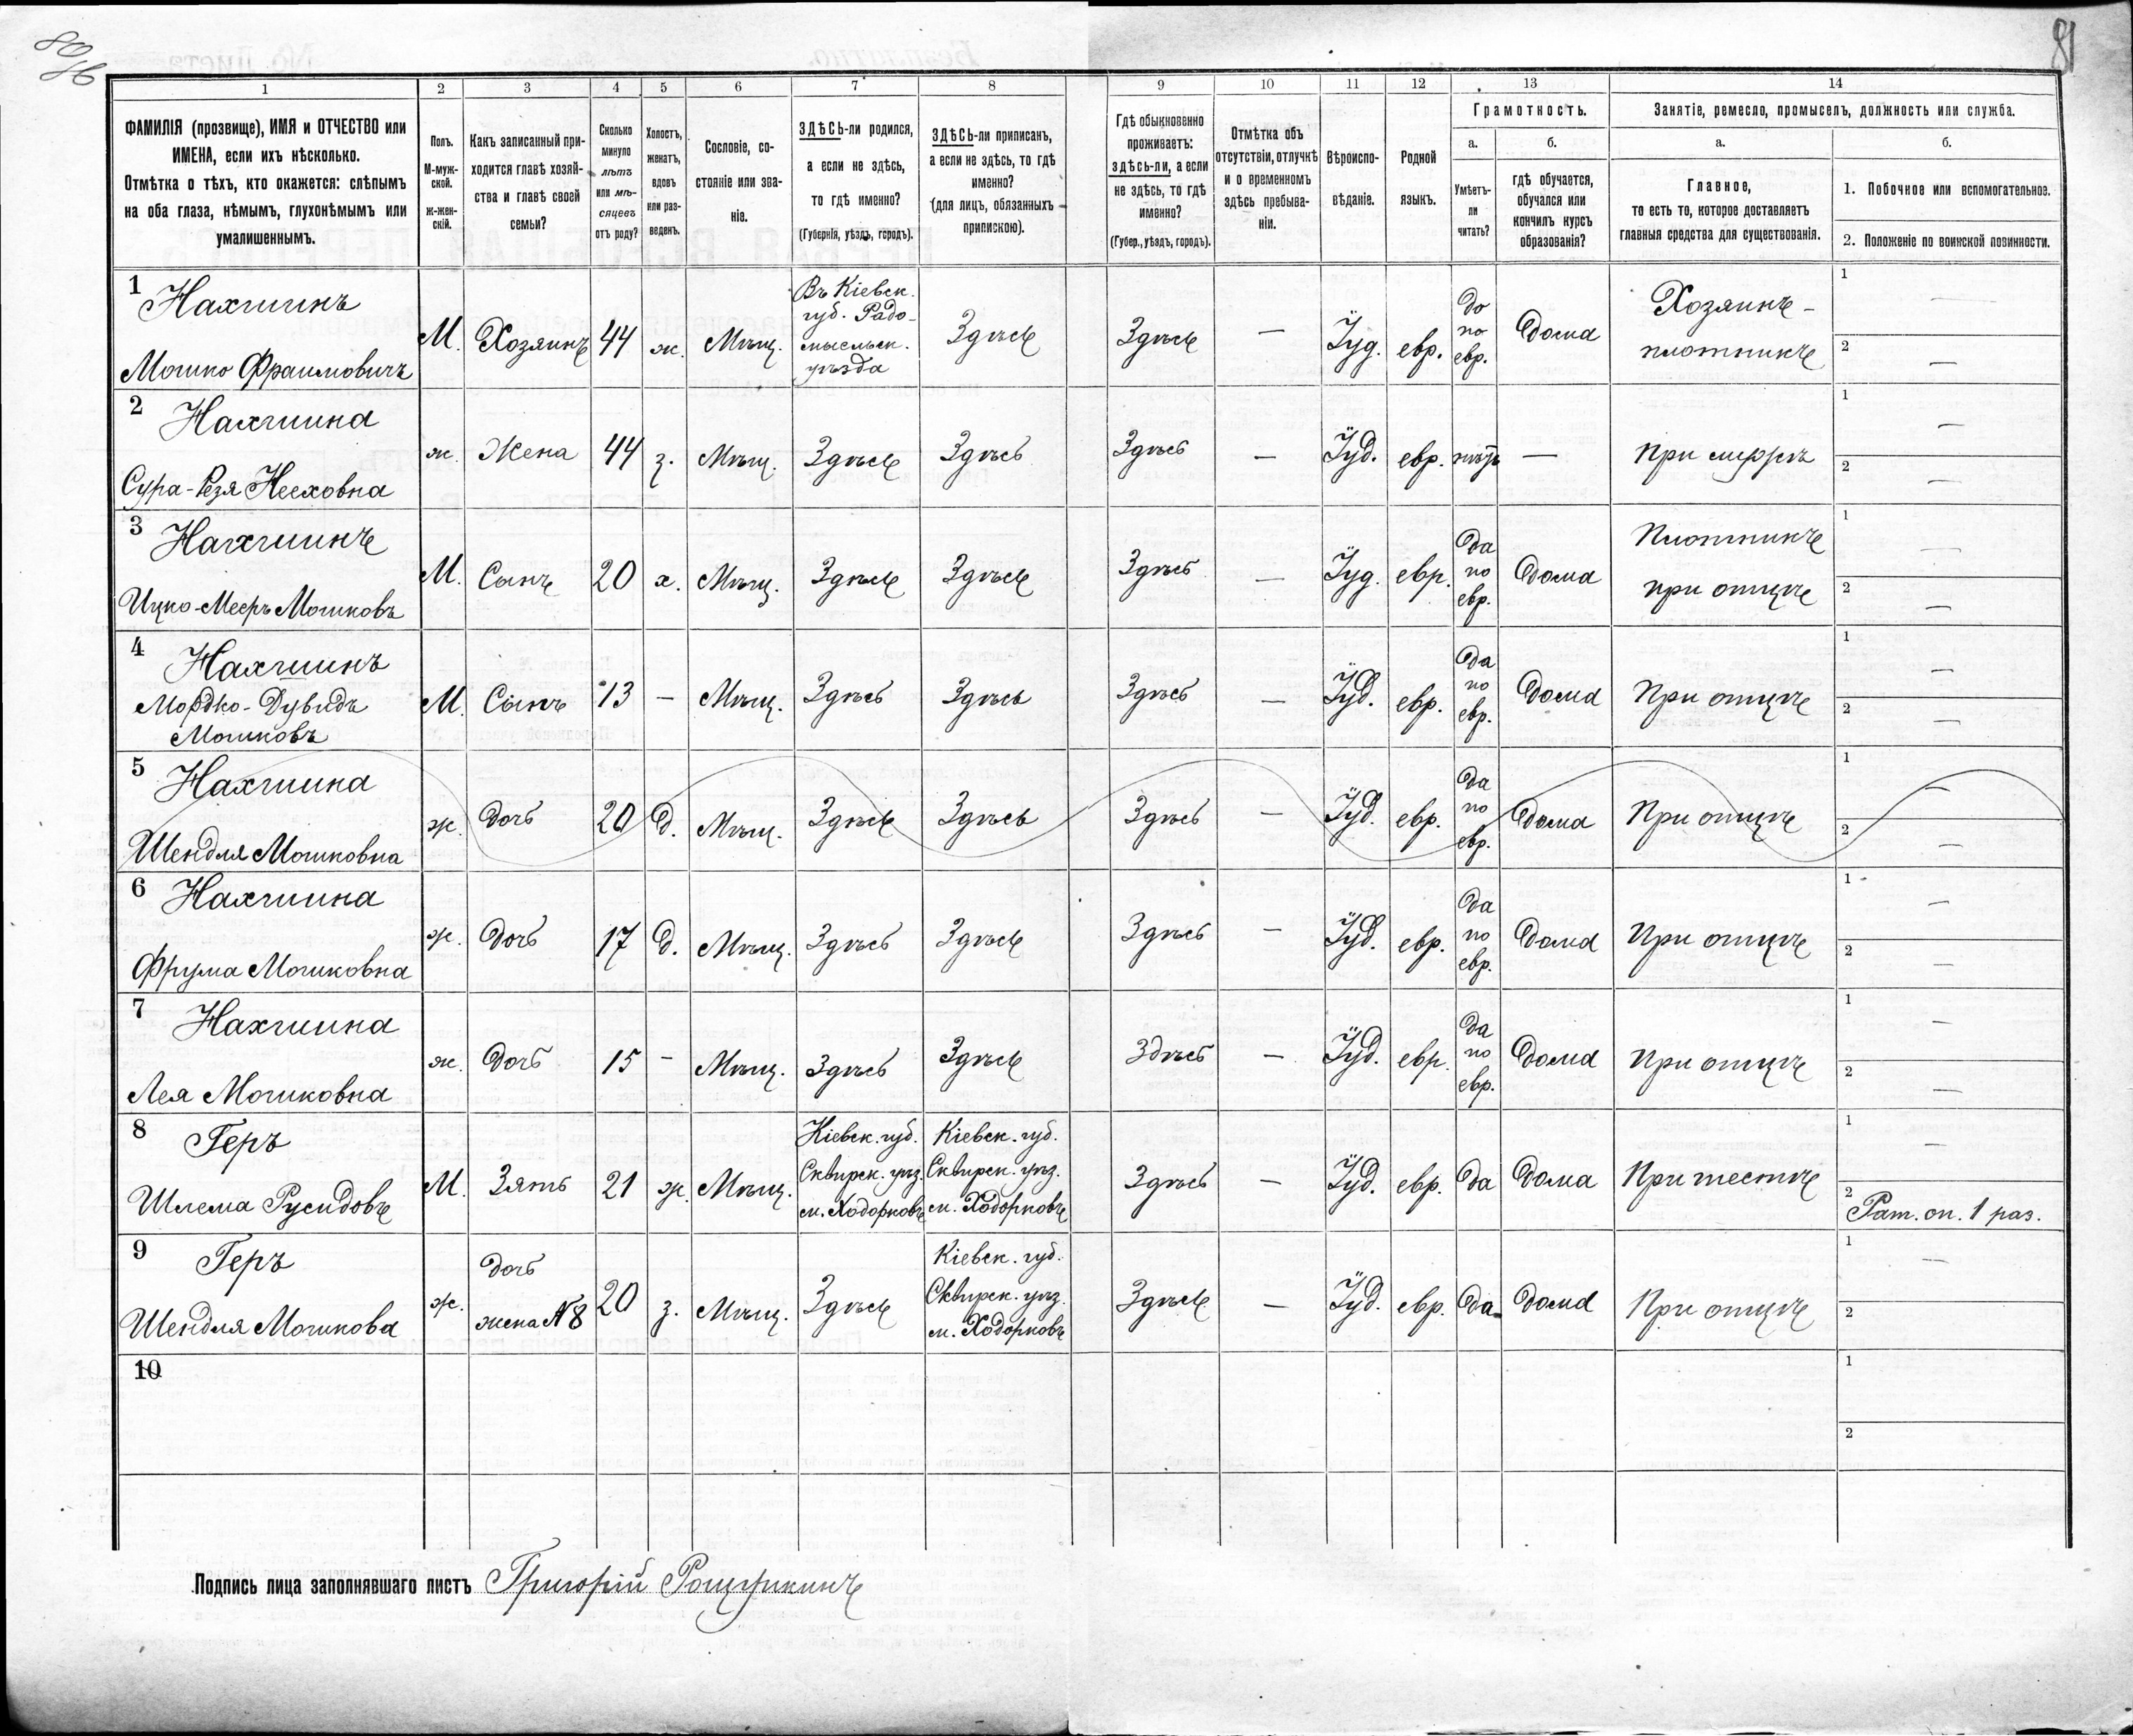 80 об
81
1 2 3 4 5 6 7 8 9 10 11 12 13 14
ФАМИЛІЯ (прозвище), ИМЯ и ОТЧЕСТВО или
ИМЕНА, если ихъ нѣсколько.
Отмѣтка о тѣхъ, кто окажется: слѣпымъ
на оба глаза, нѣмымъ, глухонѣмымъ или
умалишеннымъ.
Полъ.
М-муж-
ской.
ж-жен-
скій.
Какъ записанный при-
ходится главѣ хозяй-
ства и главѣ своей
семьи?
Сколько
минуло
лѣтъ
или мѣ-
сяцевъ
отъ роду?
Холостъ,
женатъ,
вдовъ
или раз-
веденъ.
Сословіе, со-
стояніе или зва-
ніе.
ЗДѢСЬ-ли родился,
а если не здѣсь,
то гдѣ именно?
(Губернія, уѣздъ, городъ).
ЗДѢСЬ-ли приписанъ,
а если не здѣсь, то гдѣ
именно?
(для лицъ, обязанныхъ
припискою).
Гдѣ обыкновенно
проживаетъ:
здѣсь-ли, а если
не здѣсь, то гдѣ
именно?
(Губер., уѣздъ, городъ).
Отмѣтка объ
отсутствіи, отлучкѣ
и о временномъ
здѣсь пребыва-
ніи.
Вѣроиспо-
вѣданіе.
Родной
языкъ.
Грамотность.
а.
Умѣетъ-
ли
читать?
б.
гдѣ обучается,
обучался или
кончилъ курсъ
образованія?
Занятіе, ремесло, промыселъ, должность или служба.
а.
Главное,
то есть то, которое доставляетъ
главныя средства для существованія.
б.
1. Побочное или вспомогательное.
2. Положеніе по воинской повинности.
1 Нахшинъ
Мошко Фраимовичъ
М. Хозяинъ 44 ж. Мѣщ.
Въ Кіевск.
губ. Радо-
мысльск.
уѣзда
Здѣсь Здѣсь — Іуд. евр.
до
по
евр.
Дома
Хозяинъ -
плотникъ
1 —
2 —
2 Нахшина
Сура-Рейзя
ж. Жена 44 з. Мѣщ. Здѣсь Здѣсь Здѣсь — Іуд. евр. нѣтъ — При мужѣ
1 —
2 —
3 Нахшинъ
Ицко-Мееръ Мошковъ
М. Сынъ 20 х. Мѣщ. Здѣсь Здѣсь Здѣсь — Іуд. евр.
Да
по
евр.
Дома
Плотникъ
при отцѣ
1 —
2 —
4 Нахшинъ
Мордко-Дувидъ
Мошковъ
М. Сынъ 13 — Мѣщ. Здѣсь Здѣсь Здѣсь — Іуд. евр.
Да
по
евр.
Дома При отцѣ
1 —
2 —
5 Нахшина
Шендля Мошковна
ж. Дочь 20 Д. Мѣщ. Здѣсь Здѣсь Здѣсь — Іуд. евр.
Да
по
евр.
Дома При отцѣ
1 —
2 —
6 Нахшина
Фрума Мошковна
ж. Дочь 17 Д. Мѣщ. Здѣсь Здѣсь Здѣсь — Іуд. евр.
Да
по
евр.
Дома При отцѣ
1 —
2 —
7 Нахшина
Лея Мошковна
ж. Дочь 15 — Мѣщ. Здѣсь Здѣсь Здѣсь — Іуд. евр.
Да
по
евр.
Дома При отцѣ
1 —
2 —
8 Геръ
Шлема Русидовъ
М. Зять 21 ж. Мѣщ.
Кіевск. губ.
Сквирск. уѣз.
м. Ходорковъ
Кіевск. губ.
Сквирск. уѣз.
м. Ходорковъ
Здѣсь — Іуд. евр. Да Дома При тестѣ
1 —
2 Рат. оп. 1 раз.
9 Геръ
Шендля Мошкова
ж.
Дочь
жена №8
20 з. Мѣщ. Здѣсь
Кіевск. губ.
Сквирск. уѣз.
м. Ходорковъ
Здѣсь — Іуд. евр. Да Дома При отцѣ
1 —
2
10
1
2
Подпись лица заполнявшаго листъ Григорій Рощупкинъ